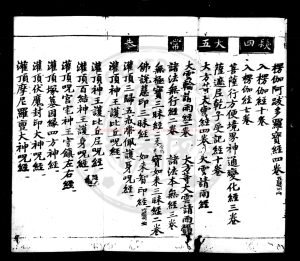 四 秋
楞伽阿跋多羅寶經四卷
入楞伽經十卷
入楞伽經七卷
菩薩行方便境界神通變化經三卷
薩遮尼乾子受記經十卷
五 大
大方等大雲經四卷 大雲請雨經
大雲輪請雨經二卷 大方等大雲請雨經
諸法無行經二卷 諸法本無經三卷
常
無極寶三昧經 寶如來三昧經二卷
佛說慧印三昧經 如來智印經
灌頂三歸五戒帶佩護身呪經
恭
灌頂神王護比丘呪經
灌頂百結神王護身呪經
灌頂呪宮宅神王守鎮左右經
灌頂塚墓因緣四方神經
灌頂伏魔封印大神呪經
灌頂摩尼羅亶大神呪經